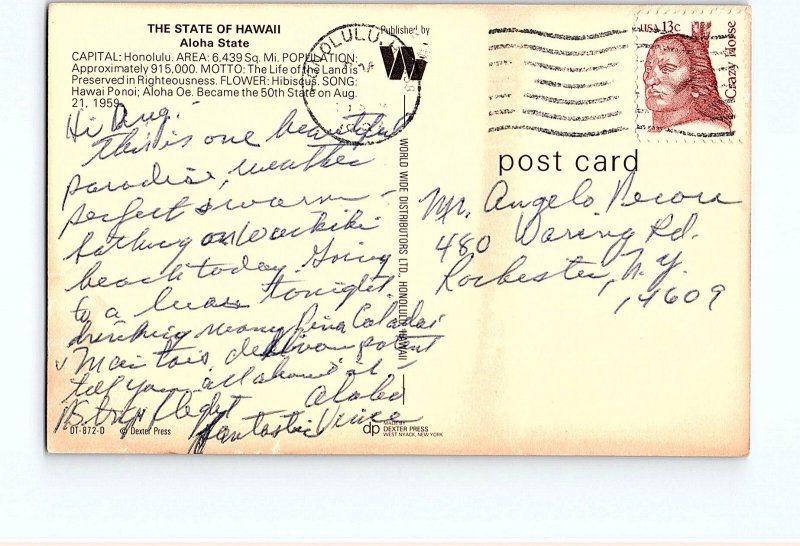 THE STATE OF HAWAII
Aloha State
CAPITAL: Honolulu. AREA: 6,439 Sq. Mi. POPULATION:
Approximately 915,000. MOTTO: The Life of the Land is
Preserved in Righteousness. FLOWER: Hibiscus. SONG:
Hawai Ponoi; Aloha Oe. Became the 50th State on Aug.
21, 1959.
Hi Ang:
This is one beautiful
paradise, weather
perfect & warm –
bathing on Waikiki
beach today. Going
to a luau tonight.
drinking many Pina Coladas
Mai tais delicious potent
tell you all about it –
Aloha
Vince
P.S. trip flight
fantastic
DT-872-D © Dexter Press
Published by
W
WORLD WIDE DISTRIBUTORS LTD., HONOLULU HAWAII
dp MADE BY
DEXTER PRESS
WEST NYACK, NEW YORK
HONOLULU,
USA 13c
Crazy Horse
post card
Mr. Angelo Pecora
480 Waring Rd.
Rochester, N.Y.
14609